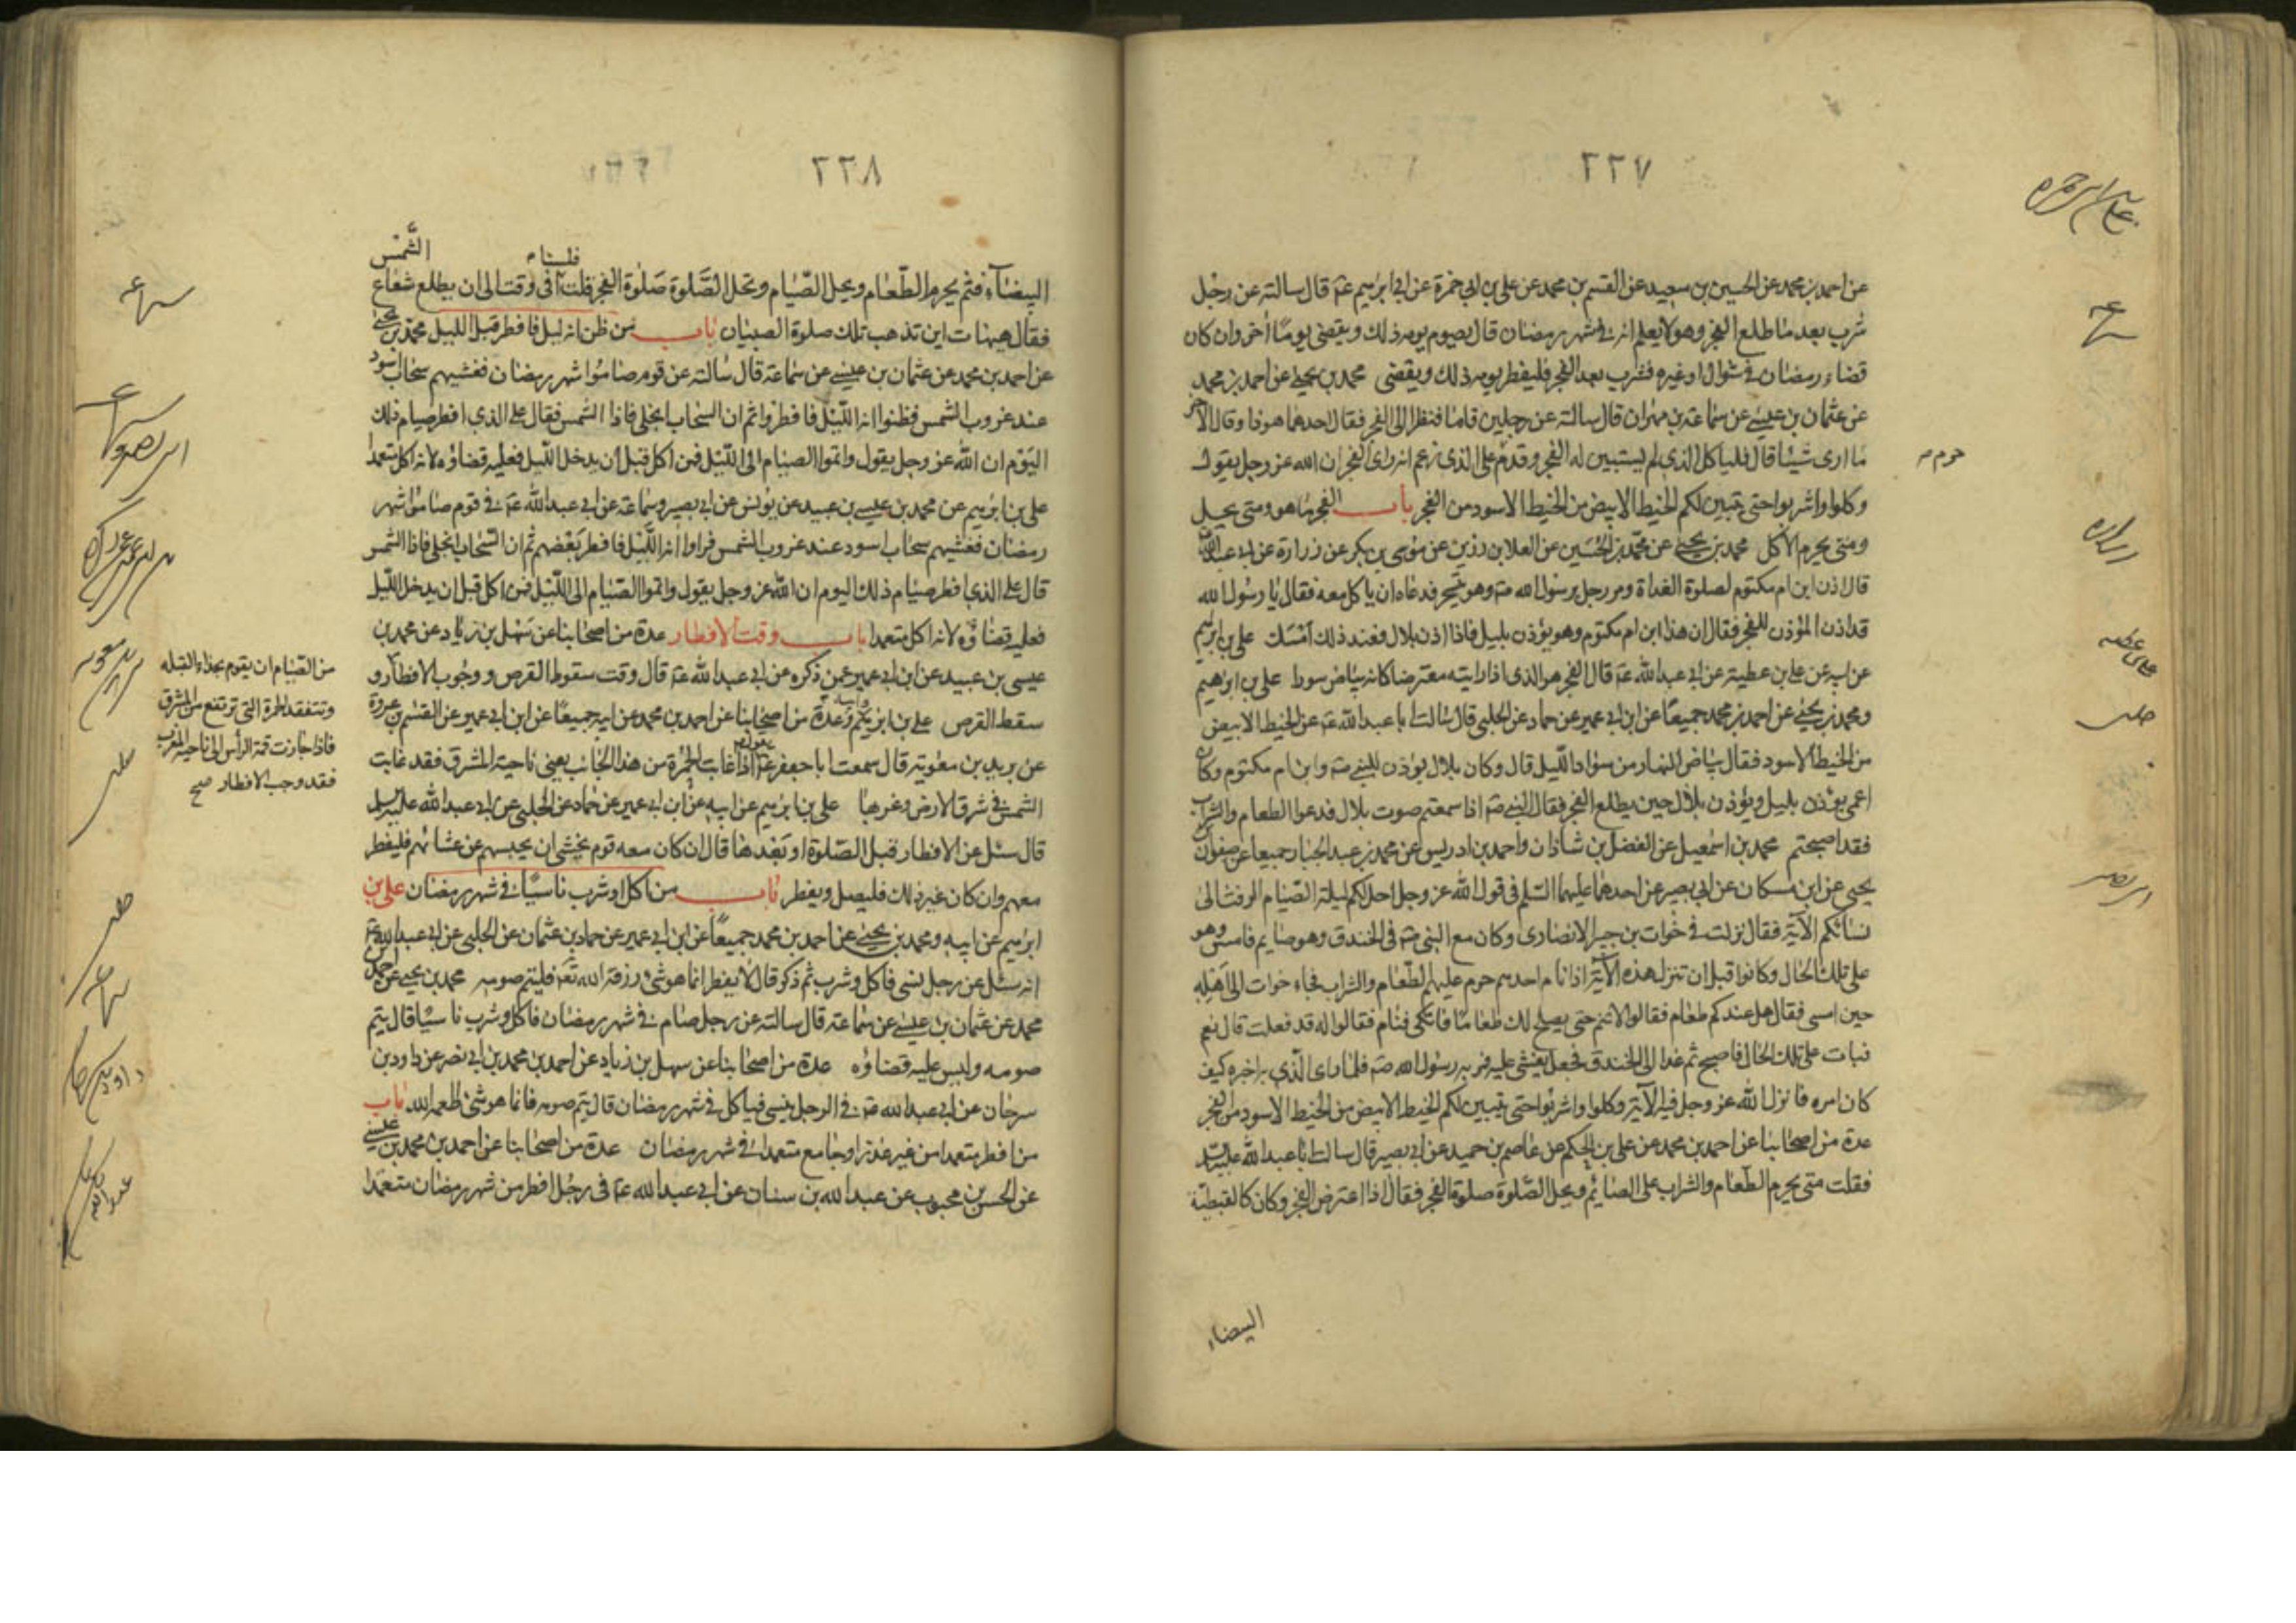 ٢٢٧
عن احمد بن محمد عن الحسين بن سعيد عن القسم بن محمد عن علي بن ابي حمزة عن ابي ابرهيم عم قال سالته عن رجل
شرب بعد ما طلع الفجر وهو لا يعلم انه في شهر رمضان قال يصوم يومه ذلك ويقضي يوما آخر وان كان
قضاء رمضان في شوال او غيره فشرب بعد الفجر فليفطر يومه ذلك ويقضي محمد بن يحيى عن احمد بن محمد
عن عثمان بن عيسى عن سماعة بن مهران قال سالته عن رجلين قاما فنظرا الى الفجر فقال احدهما هوذا وقال الآخر
ما ارى شيئا قال فلياكل الذي لم يستبين له الفجر وقد حرم على الذي زعم انه راى الفجر ان الله عز وجل يقول
وكلوا واشربوا حتى يتبين لكم الخيط الابيض من الخيط الاسود من الفجر باب الفجر ما هو ومتى يحل
ومتى يحرم الاكل محمد بن يحيى عن محمد بن الحسين عن العلا بن رزين عن موسى بن بكر عن زرارة عن ابي عبدالله
قال اذن ابن ام مكتوم لصلوة الغداة ومر رجل برسول الله صم وهو يتسحر فدعاه ان ياكل معه فقال يا رسول الله
قد اذن المؤذن للفجر فقال ان هذا ابن ام مكتوم وهو يؤذن بليل فاذا اذن بلال فعند ذلك امسك علي بن ابرهيم
عن ابيه عن علي بن عطية عن ابي عبد الله عم قال الفجر هو الذي اذا رايته معترضا كانه بياض سورا علي بن ابرهيم
ومحمد بن يحيى عن احمد بن محمد جميعا عن ابن ابي عمير عن حماد عن الحلبي قال سالت ابا عبد الله عم عن الخيط الابيض
من الخيط الاسود فقال بياض النهار من سواد الليل قال وكان بلال يؤذن للنبي صم وابن ام مكتوم وكان
اعمى يؤذن بليل ويؤذن بلال حين يطلع الفجر فقال النبي صم اذا سمعتم صوت بلال فدعوا الطعام والشراب
فقد اصبحتم محمد بن اسمعيل عن الفضل بن شاذان واحمد بن ادريس عن محمد بن عبد الجبار جميعا عن صفوان بن
يحيى عن ابن مسكان عن ابي بصير عن احدهما عليهما السلم في قول الله عز وجل احل لكم ليلة الصيام الرفث الى
نسائكم الآية فقال نزلت في خوات بن جبير الانصارى وكان مع النبي صم في الخندق وهو صايم فامسى وهو
على تلك الحال وكانوا قبل ان تنزل هذه الآية اذا نام احدهم حرم عليه الطعام والشراب فجاء خوات الى اهله
حين امسى فقال هل عندكم طعام فقالوا لا تنم حتى يصلح لك طعاما فاتكى فنام فقالوا له قد فعلت قال نعم
فبات على تلك الحال فاصبح ثم غدا الى الخندق فجعل يغشى عليه فمر به رسول الله صم فلما راى الذي به اخبره كيف
كان امره فانزل الله عز وجل فيه الآية وكلوا واشربوا حتى يتبين لكم الخيط الابيض من الخيط الاسود من الفجر
عدة من اصحابنا عن احمد بن محمد عن علي بن الحكم عن عاصم بن حميد عن ابي بصير قال سالت ابا عبد الله عليه السلم
فقلت متى يحرم الطعام والشراب على الصائم ويحل الصلوة صلوة الفجر فقال اذا اعترض الفجر وكان كالقبطية
البيضاء
علي بن ابي حمزة
سماعه
حرم
زراره
على بن عطيه
حلبى
ابى بصير
٢٢٨
البيضاء فثم يحرم الطعام ويحل الصيام وتحل الصلوة صلوة الفجر قلت افي وقت الى ان يطلع شعاع الشمس
فلسنا
فقال هيهات اين تذهب تلك صلوة الصبيان باب من ظن انه ليل فافطر قبل الليل محمد بن يحيى
عن احمد بن محمد عن عثمان بن عيسى عن سماعة قال سالته عن قوم صاموا شهر رمضان فغشيهم سحاب اسود
عند غروب الشمس فظنوا انه الليل فافطروا ثم ان السحاب انجلى فاذا الشمس فقال على الذي افطر صيام ذلك
اليوم ان الله عز وجل يقول واتموا الصيام الى الليل فمن اكل قبل ان يدخل الليل فعليه قضاؤه لانه اكل متعمدا
علي بن ابرهيم عن محمد بن عيسى بن عبيد عن يونس عن ابي بصير وسماعة عن ابي عبد الله عم في قوم صاموا شهر
رمضان فغشيهم سحاب اسود عند غروب الشمس فراوا انه الليل فافطر بعضهم ثم ان السحاب انجلى فاذا الشمس
قال على الذي افطر صيام ذلك اليوم ان الله عز وجل يقول واتموا الصيام الى الليل فمن اكل قبل ان يدخل الليل
فعليه قضاؤه لانه اكل متعمدا باب وقت الافطار عدة من اصحابنا عن سهل بن زياد عن محمد بن
عيسى بن عبيد عن ابن ابي عمير عمن ذكره عن ابي عبد الله عم قال وقت سقوط القرص ووجوب الافطار و
سقط القرص علي بن ابرهيم عن ابيه وعدة من اصحابنا عن احمد بن محمد عن ابيه جميعا عن ابن ابي عمير عن القسم بن عروة
عن بريد بن معوية قال سمعت ابا جعفر عم يقول اذا غابت الحمرة من هذا الجانب يعني ناحية المشرق فقد غابت
الشمس في شرق الارض وغربها علي بن ابرهيم عن ابيه عن ابن ابي عمير عن حماد عن الحلبي عن ابي عبد الله عليه السلم
قال سئل عن الافطار قبل الصلوة او بعدها قال ان كان معه قوم يخشى ان يحبسهم عن عشائهم فليفطر
معهم وان كان غير ذلك فليصل ويفطر باب من اكل او شرب ناسيا في شهر رمضان علي بن
ابرهيم عن ابيه ومحمد بن يحيى عن احمد بن محمد جميعا عن ابن ابي عمير عن حماد بن عثمان عن الحلبي عن ابي عبد الله عم
انه سئل عن رجل نسى فاكل وشرب ثم ذكر قال لا يفطر انما هو شئ رزقه الله تع فليتم صومه محمد بن يحيى عن احمد بن
محمد عن عثمان بن عيسى عن سماعة قال سالته عن رجل صام في شهر رمضان فاكل وشرب ناسيا قال يتم
صومه وليس عليه قضاؤه عدة من اصحابنا عن سهل بن زياد عن احمد بن محمد بن ابي نصر عن داود بن
سرحان عن ابي عبد الله عم في الرجل ينسى فياكل في شهر رمضان قال يتم صومه فانما هو شئ اطعمه الله باب
من افطر متعمدا من غير عذر او جامع متعمدا في شهر رمضان عدة من اصحابنا عن احمد بن محمد بن عيسى
عن الحسن بن محبوب عن عبد الله بن سنان عن ابي عبد الله عم في رجل افطر من شهر رمضان متعمدا
من الصيام ان يقوم بحذاء القبله
وتتفقد الحمرة التي ترتفع من المشرق
فاذا جازت قمة الراس الى ناحية المغرب
فقد وجب الافطار صح
سماعه
ابى بصير وسماعه
بريد بن معويه
حلبى
حلبى
سماعه
داود بن سرحان